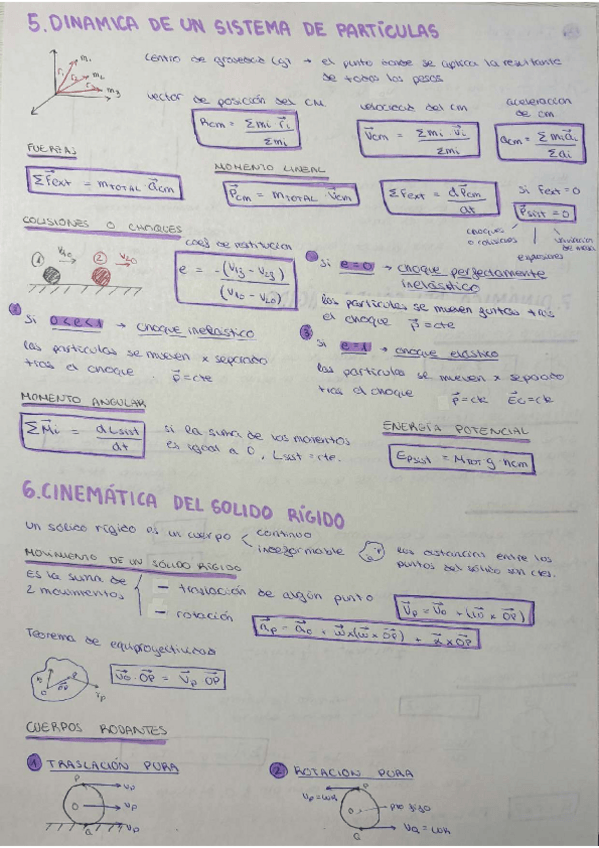 5. DINAMICA DE UN SISTEMA DE PARTÍCULAS
m₁
r₁
m₂
r₂
m₃
centro de gravedad (g) → el punto donde se aplica la resultante
de todos los pesos
vector de posición del CM
velocidad del cm
aceleracion
de cm
Rcm = Σmi r⃗i / Σmi
V⃗cm = Σmi · v⃗i / Σmi
acm = Σmia⃗i / Σai
FUERZAS
MOMENTO LINEAL
ΣF⃗ext = mTOTAL · a⃗cm
P⃗cm = mTOTAL · V⃗cm
ΣF⃗ext = dP⃗cm / dt
si Fext = 0
P⃗sist = 0
choques
o colisiones
explosiones
variación
de masa
COLISIONES O CHOQUES
coef de restitución
1 V₁₀ 2 V₂₀
e = -(V₁f - V₂f) / (V₁₀ - V₂₀)
si e = 0 → choque perfectamente
inelástico
las partículas se mueven juntas tras
el choque p⃗ = cte
2 si 0<e<1 → choque inelástico
las partículas se mueven x separado
tras el choque p⃗ = cte
3 si e = 1 → choque elástico
las partículas se mueven x separado
tras el choque p⃗ = cte E⃗c = cte
MOMENTO ANGULAR
ΣM⃗i = dLsist / dt
si la suma de los momentos
es igual a 0, Lsist = cte.
ENERGÍA POTENCIAL
EPsist = MTOT g · hcm
6. CINEMÁTICA DEL SOLIDO RÍGIDO
un sólido rígido es un cuerpo < continuo
indeformable
las distancias entre los
puntos del sólido son ctes.
MOVIMIENTO DE UN SÓLIDO RÍGIDO
Es la suma de
2 movimientos
— traslación de algún punto
V⃗p = V⃗o + (ω⃗ × OP⃗)
— rotación
a⃗p = a⃗o + ω⃗×(ω⃗ × OP⃗) + α⃗ × OP⃗
Teorema de equiproyectividad
O OP P Vp
V⃗o · OP⃗ = V⃗p OP⃗
CUERPOS RODANTES
1 TRASLACIÓN PURA
P Vp
O Vp
Q Vp
2 ROTACIÓN PURA
Vp = ωR P
O pto fijo
Q VQ = ωR